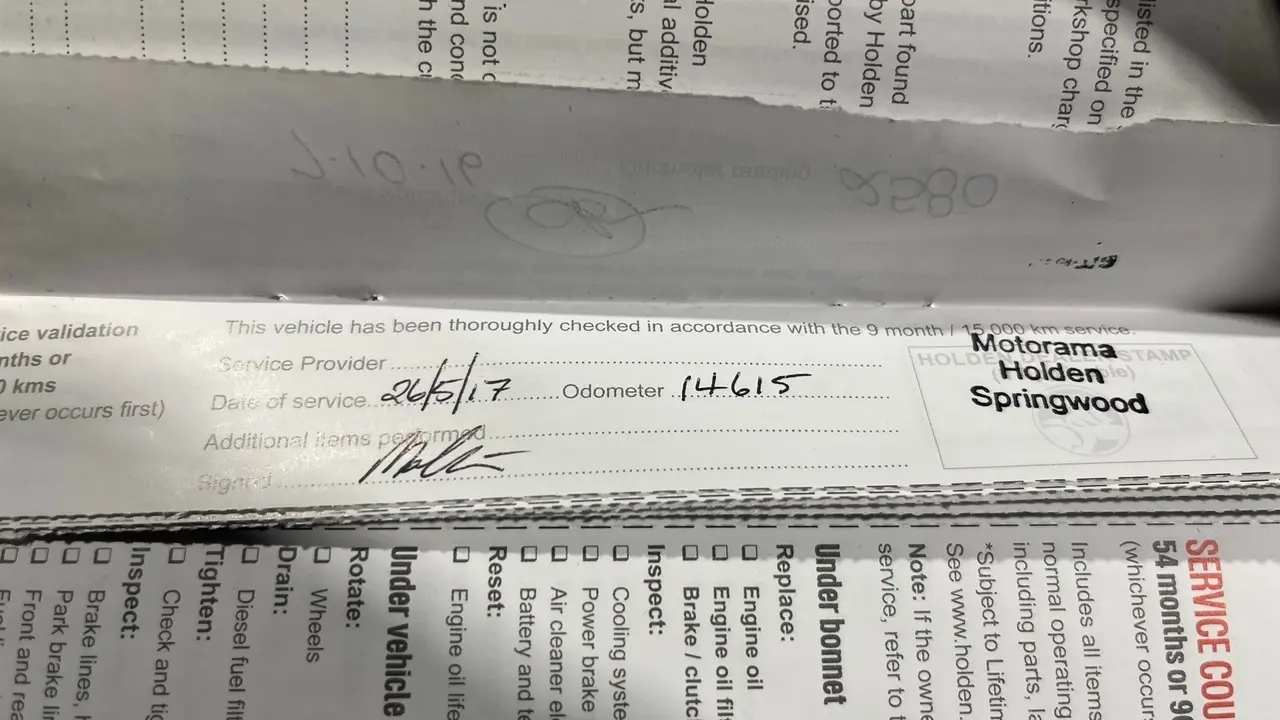 listed in the
specified on
rkshop charg
itions.
part found
by Holden
ported to t
ised.
Holden
al additiv
s, but m
is not c
nd cond
h the c
This vehicle has been thoroughly checked in accordance with the 9 month / 15,000 km service.
ice validation
nths or
0 kms
ever occurs first)
Service Provider
Date of service 26/5/17 Odometer 14615
Additional items performed
Signed
HOLDEN DEALER STAMP
Motorama
Holden
Springwood
SERVICE COU
54 months or 9
(whichever occur
Includes all items
normal operating
including parts, la
*Subject to Lifetim
See www.holden.
Note: If the owne
service, refer to t
Under bonnet
Replace:
Engine oil
Engine oil filt
Brake / clutc
Inspect:
Cooling syste
Power brake
Air cleaner el
Battery and te
Reset:
Engine oil life
Under vehicle
Rotate:
Wheels
Drain:
Diesel fuel filt
Tighten:
Check and tig
Inspect:
Brake lines, h
Park brake li
Front and rea